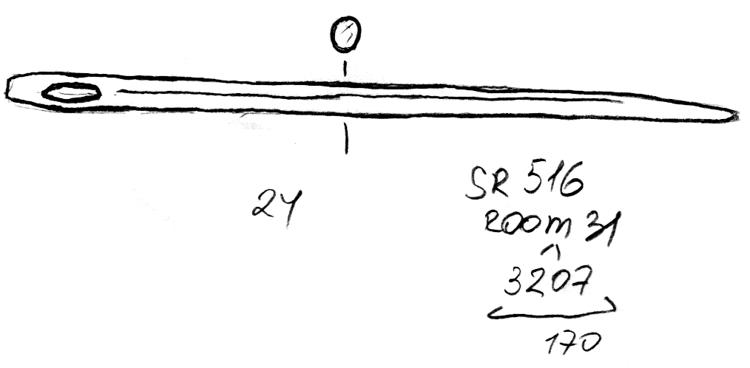 24
SR 516
ROOM 31
3207
170